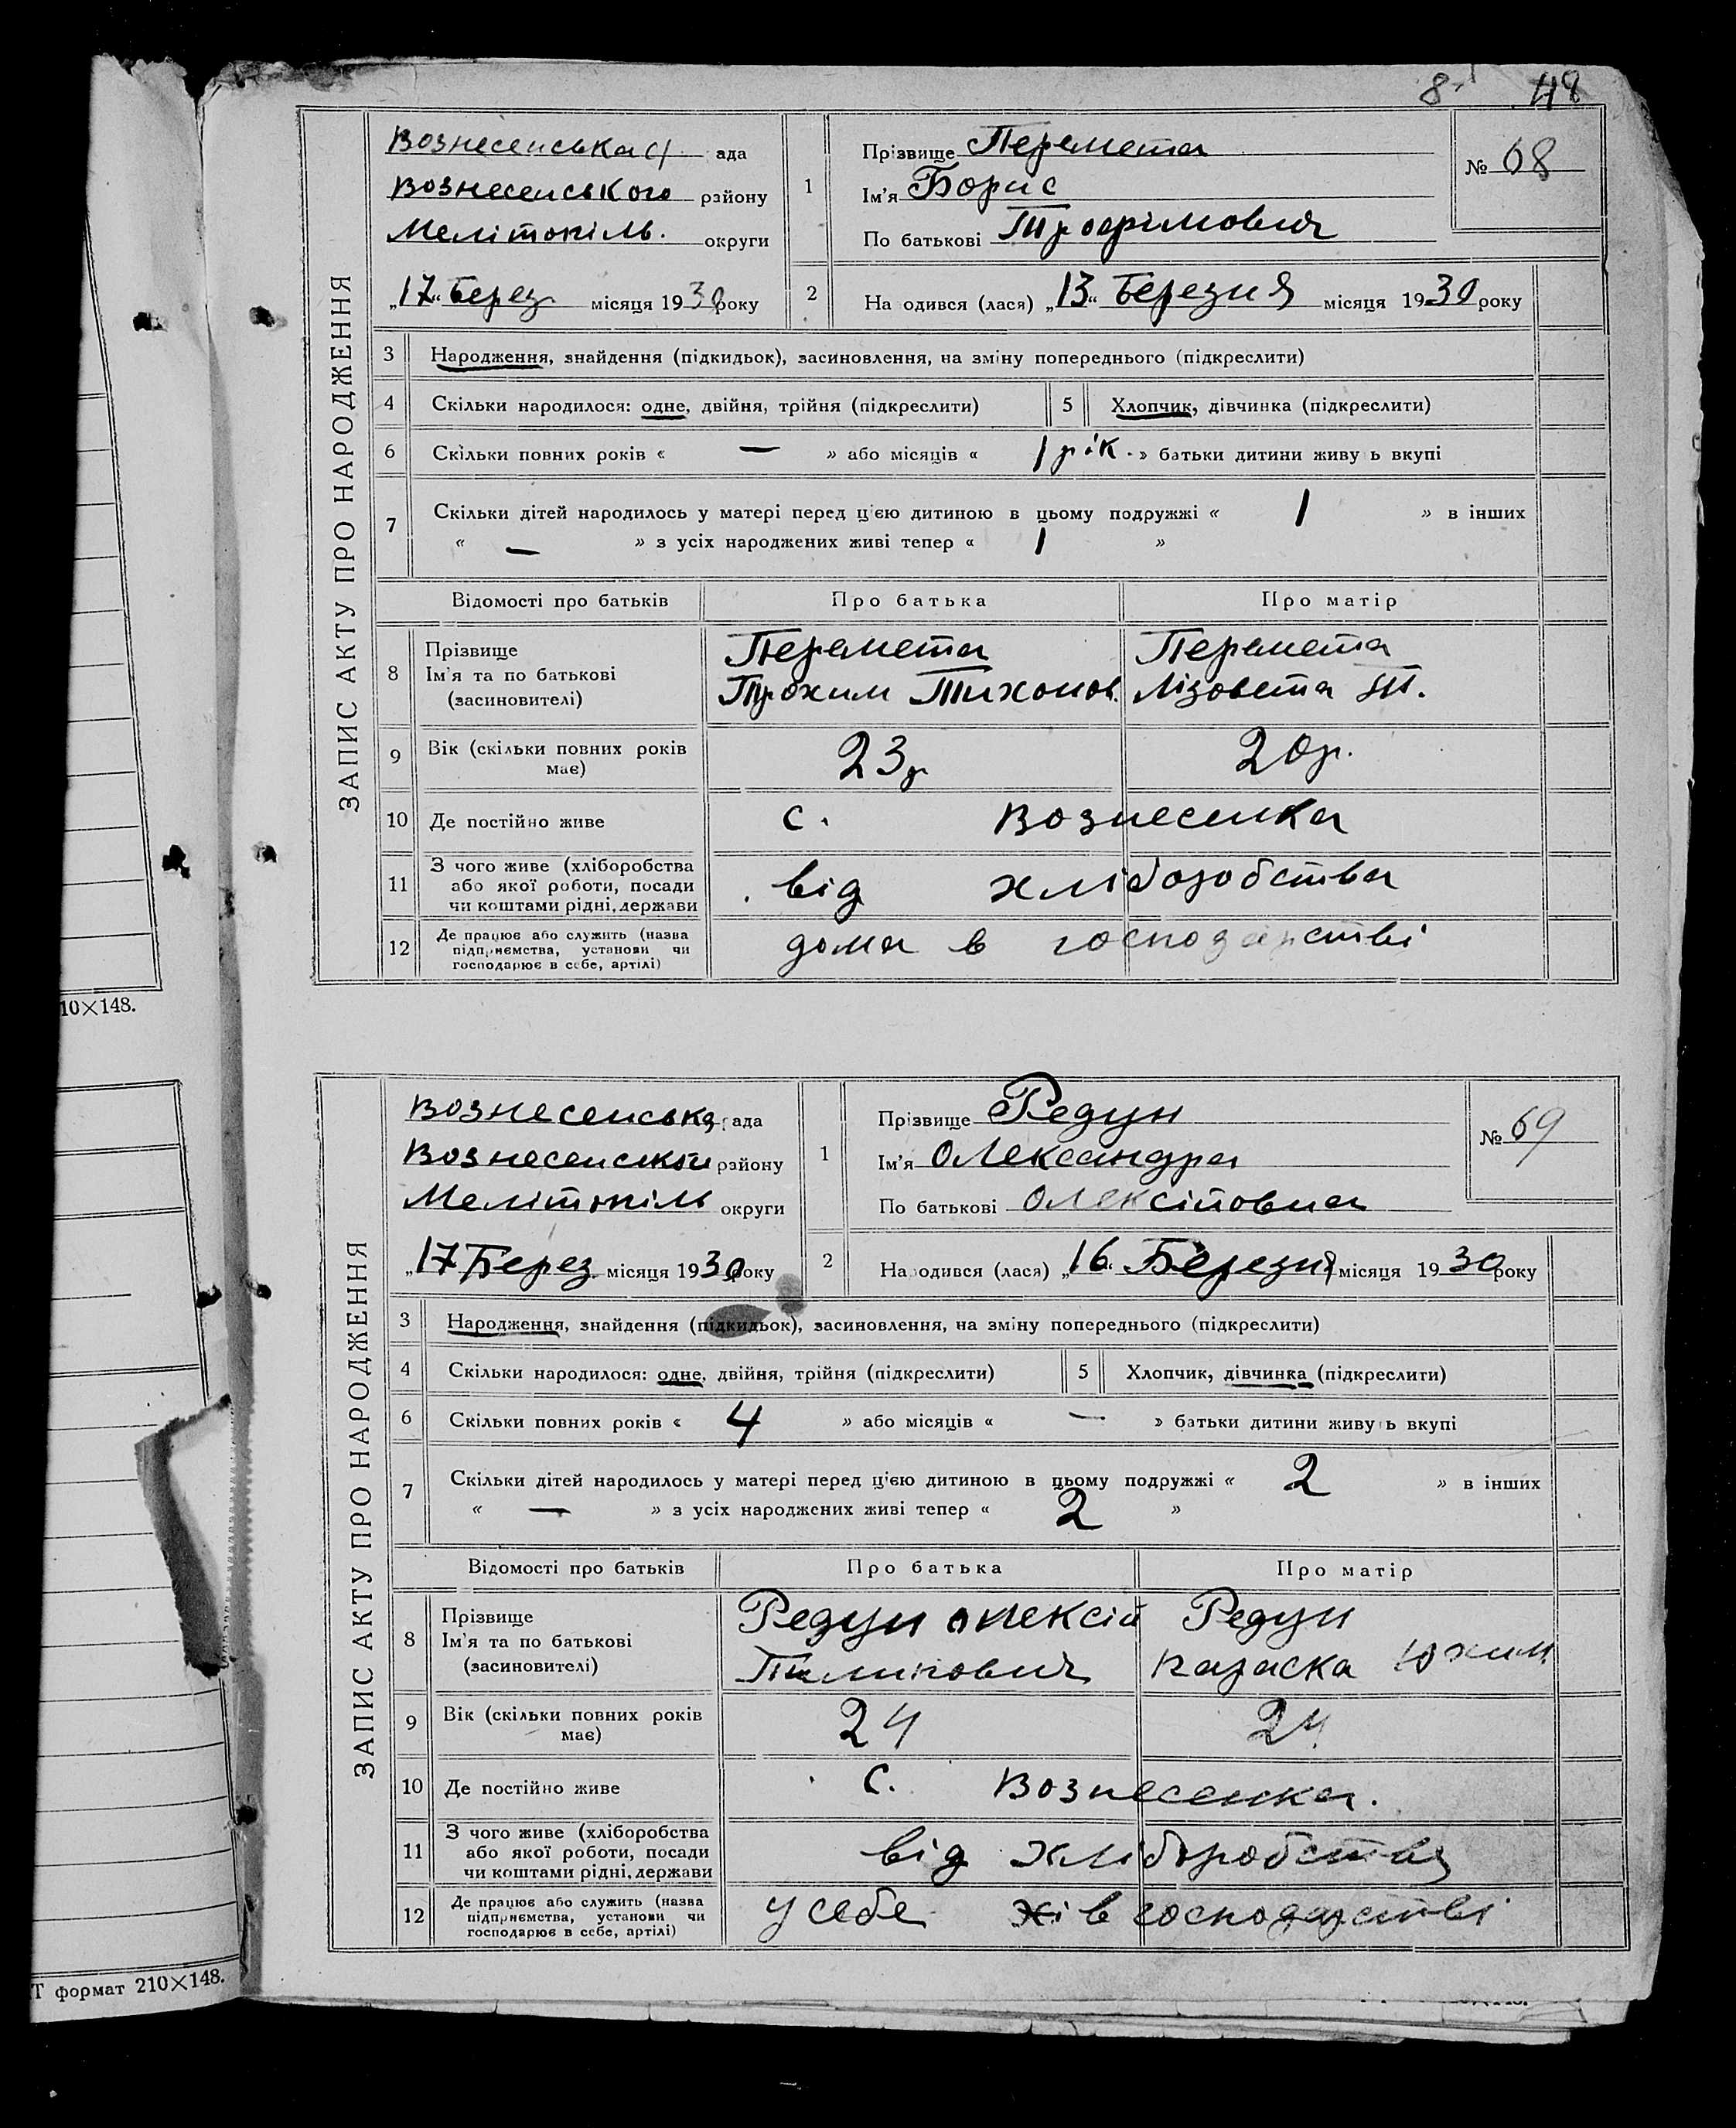 8 48
ЗАПИС АКТУ ПРО НАРОДЖЕННЯ
Вознесенська ада
Вознесенського району
Мелітопіль. округи
„17“ Берез місяця 1930 року
1 Прізвище Перемета
Ім'я Борис
По батькові Трофімович
№ 68
2 На одився (лася) „13“ Березня місяця 1930 року
3 Народження, знайдення (підкидьок), засиновлення, на зміну попереднього (підкреслити)
4 Скільки народилося: одне, двійня, трійня (підкреслити) 5 Хлопчик, дівчинка (підкреслити)
6 Скільки повних років « — » або місяців « 1 рік. » батьки дитини живу ь вкупі
7 Скільки дітей народилось у матері перед цією дитиною в цьому подружжі « 1 » в інших
« — » з усіх народжених живі тепер « 1 »
Відомості про батьків Про батька Про матір
8 Прізвище Перемета Перемета
Ім'я та по батькові Трохим Тихонов. Лізовета
(засиновителі)
9 Вік (скільки повних років має) 23 р 20 р.
10 Де постійно живе с. Вознесенка
11 З чого живе (хліборобства
або якої роботи, посади
чи коштами рідні, держави від хліборобства
12 Де працює або служить (назва
підприємства, установи чи
господарює в себе, артілі) дома в господарстві
10×148.
ЗАПИС АКТУ ПРО НАРОДЖЕННЯ
Вознесенська ада
Вознесенської району
Мелітопіль округи
„17 Берез місяця 1930 року
1 Прізвище Редун
Ім'я Олександра
По батькові Олексіїовна
№ 69
2 На одився (лася) „16“ Березня місяця 1930 року
3 Народження, знайдення (підкидьок), засиновлення, на зміну попереднього (підкреслити)
4 Скільки народилося: одне, двійня, трійня (підкреслити) 5 Хлопчик, дівчинка (підкреслити)
6 Скільки повних років « 4 » або місяців « — » батьки дитини живу ь вкупі
7 Скільки дітей народилось у матері перед цією дитиною в цьому подружжі « 2 » в інших
« — » з усіх народжених живі тепер « 2 »
Відомості про батьків Про батька Про матір
8 Прізвище Редун Олексій Редун
Ім'я та по батькові Параска Юхим.
(засиновителі)
9 Вік (скільки повних років має) 24 24
10 Де постійно живе с. Вознесенка.
11 З чого живе (хліборобства
або якої роботи, посади
чи коштами рідні, держави від хліборобства
12 Де працює або служить (назва
підприємства, установи чи
господарює в себе, артілі) у себе в господарстві
Т формат 210×148.